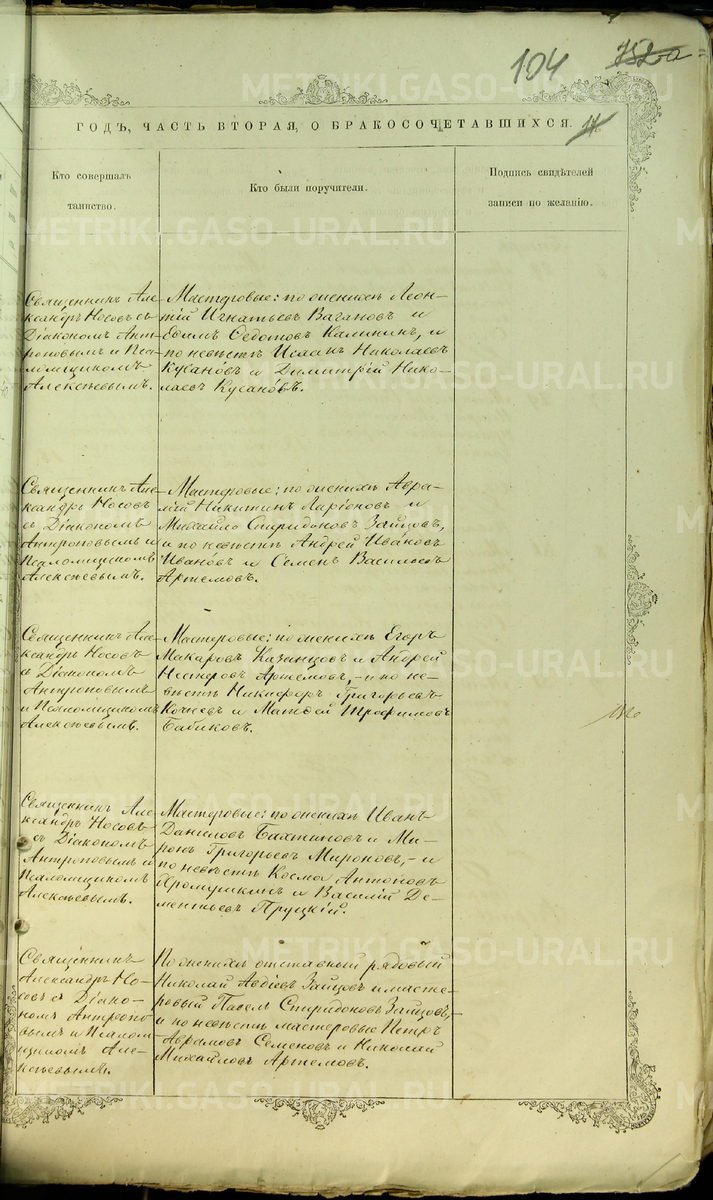 104
752 а
ГОДЪ, ЧАСТЬ ВТОРАЯ, О БРАКОСОЧЕТАВШИХСЯ.
Кто совершалъ
таинство.
Кто были поручители.
Подпись свидѣтелей
записи по желанію.
Священникъ Але-
ксандръ Носовъ съ
Діакономъ Ант-
роповымъ и Пса-
ломщикомъ
Алексѣевымъ.
Мастеровые: по женихѣ Леон-
тій Игнатьевъ Вагановъ и
Ефимъ Ѳедотовъ Калининъ, и
по невѣстѣ Исаакъ Николаевъ
Кусановъ и Димитрій Нико-
лаевъ Кусановъ.
Священникъ Але-
ксандръ Носовъ
съ Діакономъ
Антроповымъ и
Псаломщикомъ
Алексѣевымъ.
Мастеровые: по женихѣ Авра-
мій Никитинъ Ларіоновъ и
Михайло Спиридоновъ Зайцовъ,
и по невѣстѣ Андрей Ивановъ
Ивановъ и Семенъ Васильевъ
Артемовъ.
Священникъ Але-
ксандръ Носовъ
съ Діакономъ
Антроповымъ
и Псаломщикомъ
Алексѣевымъ.
Мастеровые: по женихѣ Егоръ
Макаровъ Казанцовъ и Андрей
Нестеровъ Артемовъ, - и по не-
вѣстѣ Никифоръ Григорьевъ
Кочневъ и Матвей Трофимовъ
Бабиковъ.
Священникъ Але-
ксандръ Носовъ
съ Діакономъ
Антроповымъ и
Псаломщикомъ
Алексѣевымъ.
Мастеровые: по женихѣ Иванъ
Даниловъ Бахтиновъ и Ми-
ронъ Григорьевъ Мироновъ, - и
по невѣстѣ Косма Антоновъ
Хромушкинъ и Василій Де-
ментьевъ Пруцкій.
Священникъ
Александръ Но-
совъ съ Діако-
номъ Антропо-
вымъ и Псалом-
щикомъ Але-
ксѣевымъ.
По женихѣ отставный рядовый
Николай Авдіевъ Зайцовъ и масте-
ровый Павелъ Спиридоновъ Зайцовъ, -
и по невѣстѣ мастеровые Петръ
Аврамовъ Семеновъ и Николай
Михайловъ Артемовъ.
METRIKI.GASO-URAL.RU